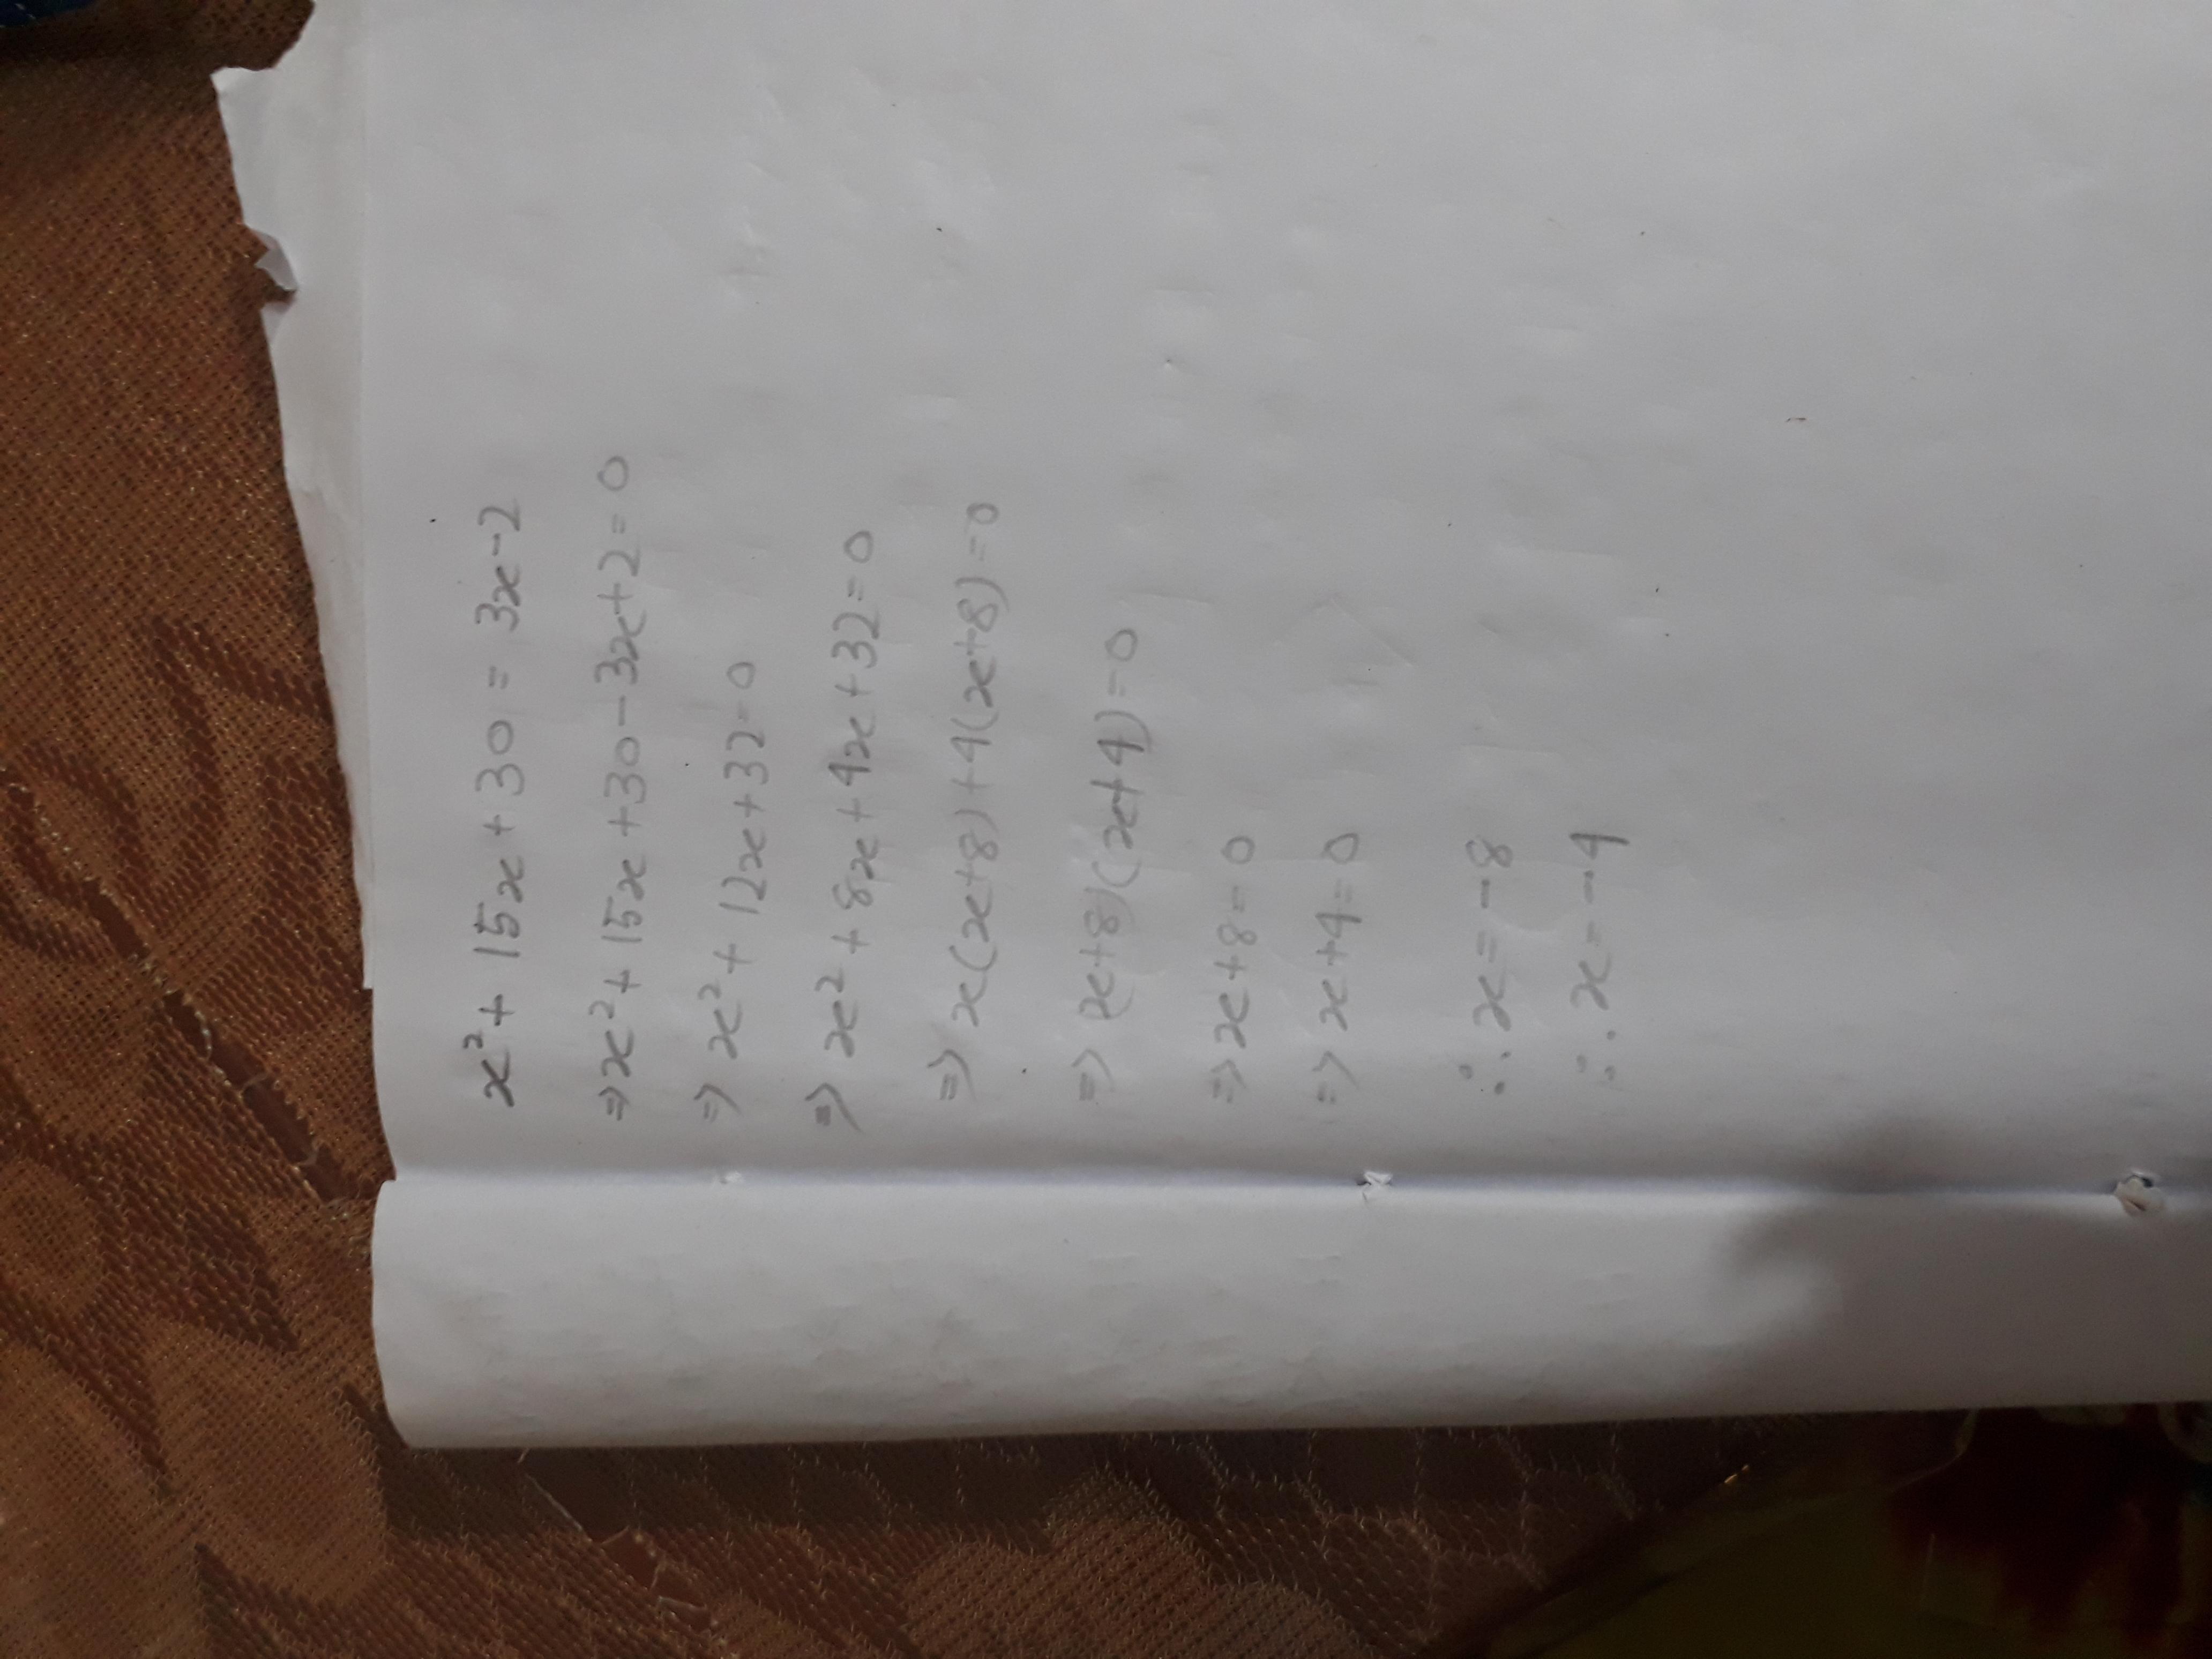 x² + 15x + 30 = 3x - 2
⇒ x² + 15x + 30 - 3x + 2 = 0
⇒ x² + 12x + 32 = 0
⇒ x² + 8x + 4x + 32 = 0
⇒ x(x+8) + 4(x+8) = 0
⇒ (x+8)(x+4) = 0
⇒ x + 8 = 0
⇒ x + 4 = 0
∴ x = -8
∴ x = -4